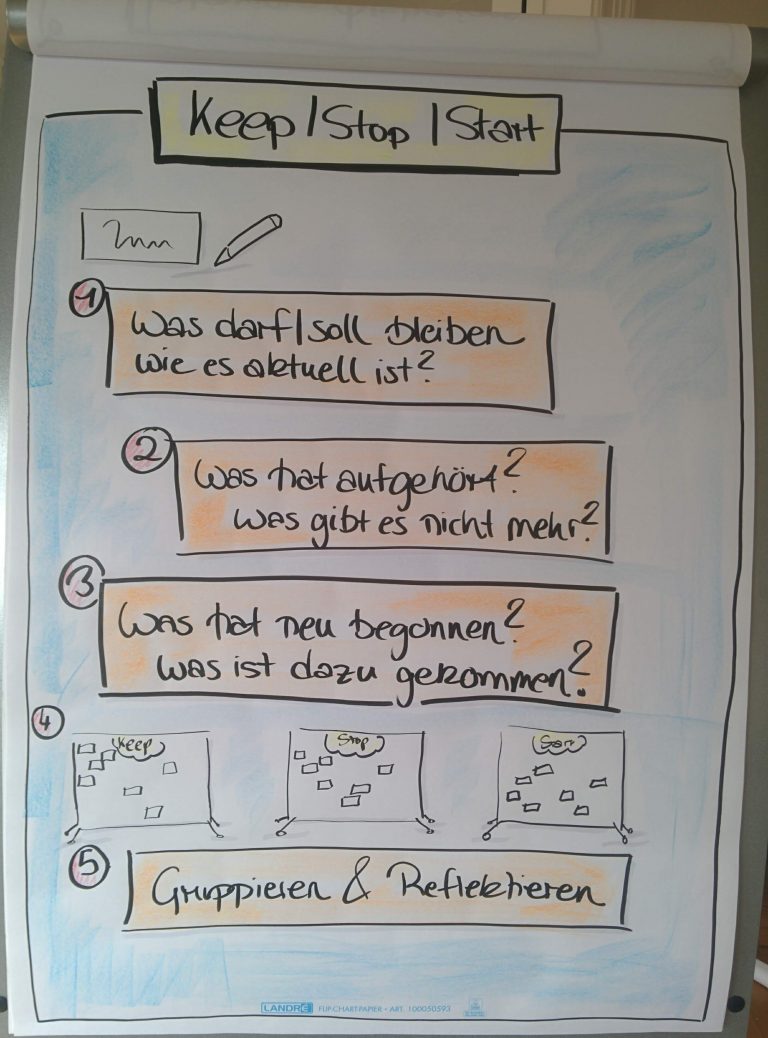 Keep | Stop | Start
1
Was darf | soll bleiben
wie es aktuell ist?
2
Was hat aufgehört?
Was gibt es nicht mehr?
3
Was hat neu begonnen?
Was ist dazu gekommen?
4
Keep
Stop
5
Gruppieren & Reflektieren
LANDRÉ FLIP-CHART-PAPIER • ART. 100050593